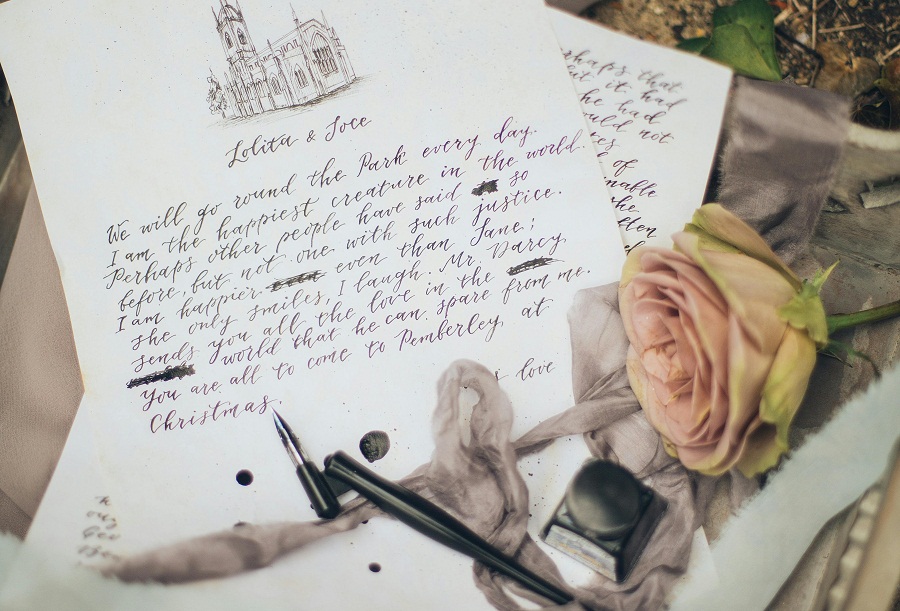 Lolita &
We will go round the Park every day.
I am the happiest creature in the world.
Perhaps other people have said so
before, but not one with such justice.
I am happier even than Jane;
she only smiles, I laugh. Mr. Darcy
sends you all the love in the
world that he can spare from me.
You are all to come to Pemberley at
Christmas.
love
that
it had
he had
not
of